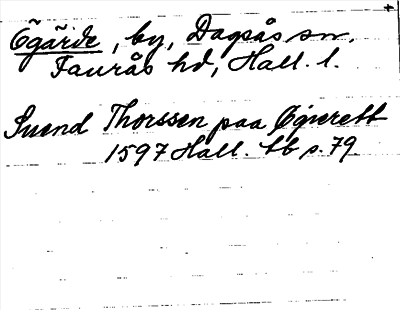 Ögärde, by, Dagsås sn,
Faurås hd, Hall. l.
Suend Thorssen paa Øgierett
1597 Hall. tb s. 79